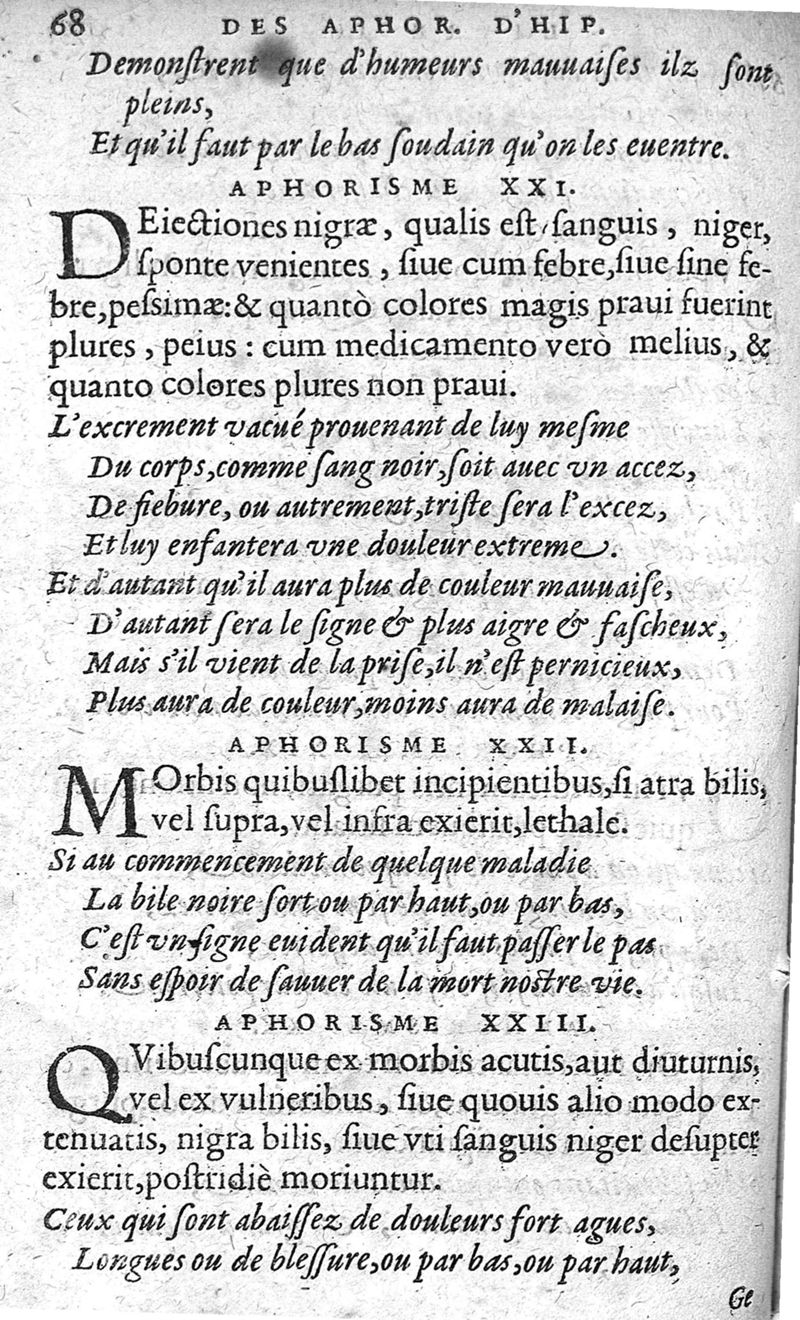 68 DES APHOR. D'HIP.
Demonſtrent que d'humeurs mauuaiſes ilz ſont
pleins,
Et qu'il faut par le bas ſoudain qu'on les euentre.
APHORISME XXI.
DEiectiones nigræ, qualis eſt ſanguis, niger,
ſponte venientes, ſiue cum febre, ſiue ſine fe-
bre, peſsimæ: & quantò colores magis praui fuerint
plures, peius: cum medicamento verò melius, &
quanto colores plures non praui.
L'excrement vacué prouenant de luy meſme
Du corps, comme ſang noir, ſoit auec vn accez,
De fiebure, ou autrement, triſte ſera l'excez,
Et luy enfantera vne douleur extreme.
Et d'autant qu'il aura plus de couleur mauuaiſe,
D'autant ſera le ſigne & plus aigre & faſcheux,
Mais s'il vient de la priſe, il n'eſt pernicieux,
Plus aura de couleur, moins aura de malaiſe.
APHORISME XXII.
MOrbis quibuſlibet incipientibus, ſi atra bilis,
vel ſupra, vel infra exierit, lethale.
Si au commencement de quelque maladie
La bile noire ſort ou par haut, ou par bas,
C'eſt vn ſigne euident qu'il faut paſſer le pas
Sans eſpoir de ſauuer de la mort noſtre vie.
APHORISME XXIII.
QVibuſcunque ex morbis acutis, aut diuturnis,
vel ex vulneribus, ſiue quouis alio modo ex-
tenuatis, nigra bilis, ſiue vti ſanguis niger deſupter
exierit, poſtridiè moriuntur.
Ceux qui ſont abaiſſez de douleurs fort agues,
Longues ou de bleſſure, ou par bas, ou par haut,
Ge